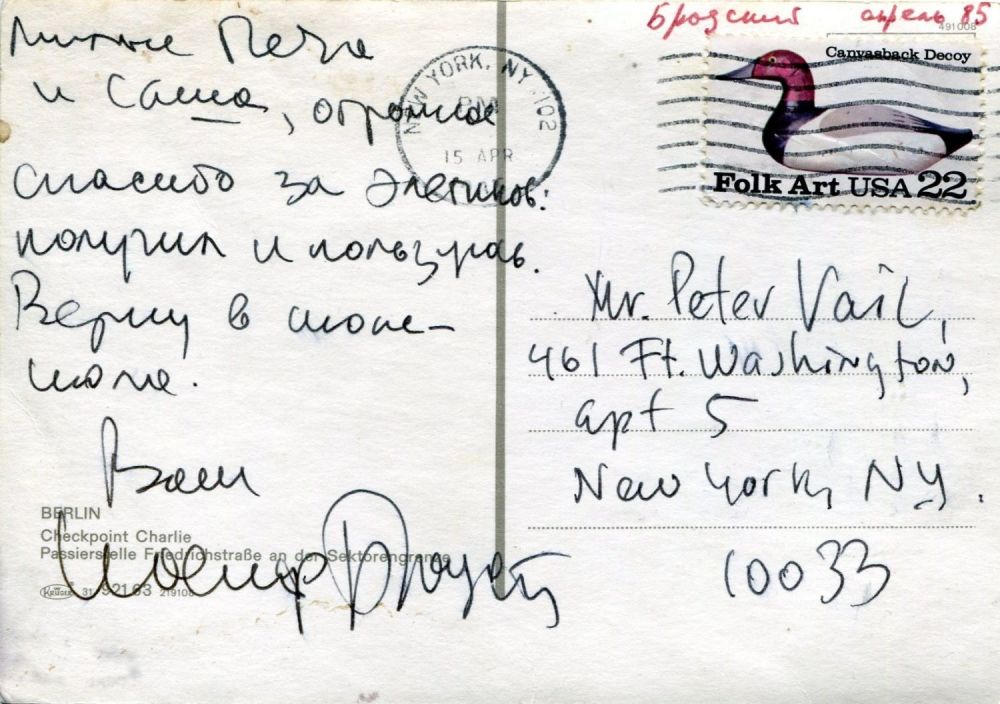 Бродский апрель 85
491008
Canvasback Decoy
Folk Art USA 22
NEW YORK, NY 102
PM
15 APR
Милые Петя
и Саша, огромное
спасибо за элетиков:
получил и пользуюсь.
Верну в
Ваш
Иосиф Бродский
BERLIN
Checkpoint Charlie
Passierstelle Friedrichstraße an der Sektorengrenze
KRÜGER 31 921.03 219108
Mr. Peter Vail,
461 Ft. Washington,
apt 5
New York, NY.
10033